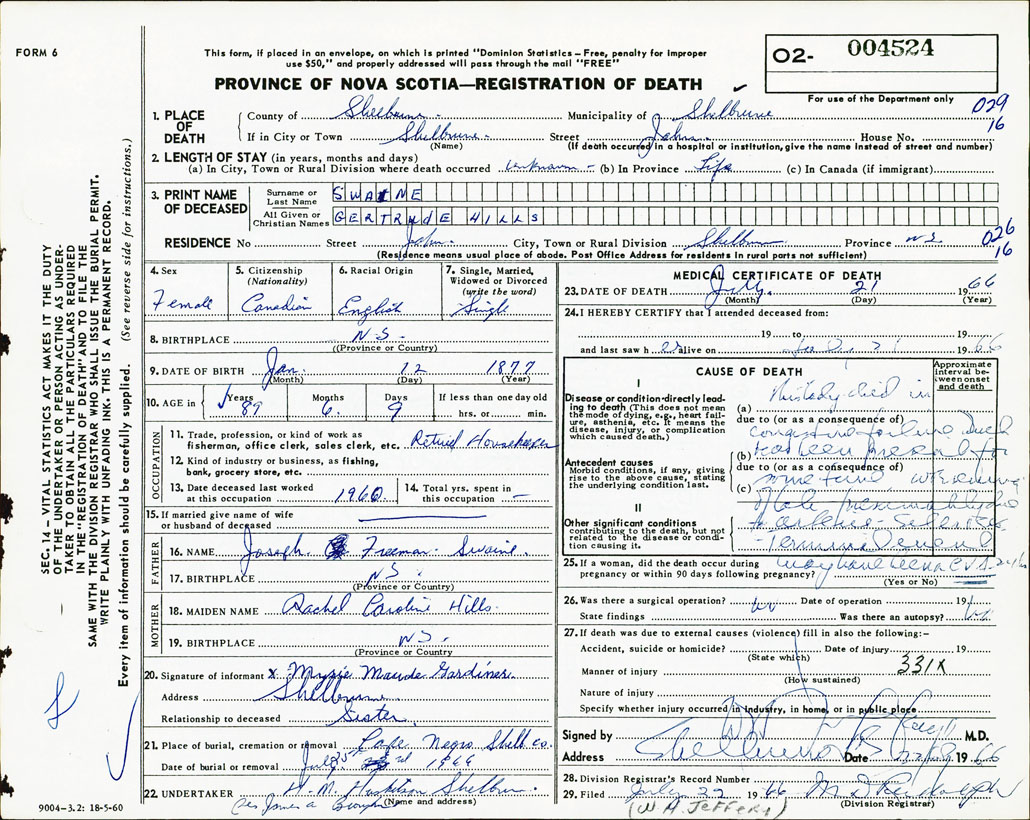 FORM 6
This form, if placed in an envelope, on which is printed "Dominion Statistics – Free, penalty for improper
use $50," and properly addressed will pass through the mail "FREE"
O2- 004524
PROVINCE OF NOVA SCOTIA—REGISTRATION OF DEATH
For use of the Department only
029
16
1. PLACE OF DEATH
County of Shelburne Municipality of Shelburne
If in City or Town Shelburne Street John House No.
(Name) (If death occurred in a hospital or institution, give the name instead of street and number)
2. LENGTH OF STAY (in years, months and days)
(a) In City, Town or Rural Division where death occurred unknown (b) In Province Life (c) In Canada (if immigrant)
3. PRINT NAME OF DECEASED
Surname or Last Name SWAINE
All Given or Christian Names GERTRUDE HILLS
RESIDENCE No Street John City, Town or Rural Division Shelburne Province NS
026
16
(Residence means usual place of abode. Post Office Address for residents in rural parts not sufficient)
4. Sex Female
5. Citizenship (Nationality) Canadian
6. Racial Origin English
7. Single, Married, Widowed or Divorced (write the word) Single
8. BIRTHPLACE N.S.
(Province or Country)
9. DATE OF BIRTH Jan. 12 1877
(Month) (Day) (Year)
10. AGE in Years 89 Months 6 Days 9 If less than one day old
hrs. or min.
OCCUPATION
11. Trade, profession, or kind of work as
fisherman, office clerk, sales clerk, etc. Retired Housekeeper
12. Kind of industry or business, as fishing,
bank, grocery store, etc.
13. Date deceased last worked
at this occupation 1960
14. Total yrs. spent in
this occupation —
15. If married give name of wife
or husband of deceased
FATHER
16. NAME Joseph Freeman Swaine
17. BIRTHPLACE NS
(Province or Country)
MOTHER
18. MAIDEN NAME Rachel Caroline Hills
19. BIRTHPLACE NS.
(Province or Country)
20. Signature of informant x Myzie Maude Gardiner
Address Shelburne
Relationship to deceased Sister
21. Place of burial, cremation or removal Cape Negro Shelb Co.
Date of burial or removal July 1966
22. UNDERTAKER H. M. Huskilson Shelburne
(Name and address)
MEDICAL CERTIFICATE OF DEATH
23. DATE OF DEATH July 21 1966
(Month) (Day) (Year)
24. I HEREBY CERTIFY that I attended deceased from:
19 to 19
and last saw her alive on July 21 1966
CAUSE OF DEATH
Approximate interval between onset and death
I
Disease or condition directly leading to death (This does not mean the mode of dying, e.g., heart failure, asthenia, etc. It means the disease, injury, or complication which caused death.)
(a) This lady died in
due to (or as a consequence of)
congestive failure which
(b) had been present for
due to (or as a consequence of)
some time
(c)
Antecedent causes
Morbid conditions, if any, giving rise to the above cause, stating the underlying condition last.
II
Other significant conditions
contributing to the death, but not related to the disease or condition causing it.
of late presumably due
to
Terminal event
may have been a CVA
25. If a woman, did the death occur during
pregnancy or within 90 days following pregnancy?
(Yes or No)
26. Was there a surgical operation? no Date of operation 19
State findings Was there an autopsy? no
27. If death was due to external causes (violence) fill in also the following:—
Accident, suicide or homicide? Date of injury 19
(State which)
Manner of injury 331X
(How sustained)
Nature of injury
Specify whether injury occurred in industry, in home, or in public place
Signed by M.D.
Address Shelburne Date 22/7 1966
28. Division Registrar's Record Number
29. Filed July 22 1966 M D Randolph
(W A JEFFERY) (Division Registrar)
SEC. 14 – VITAL STATISTICS ACT MAKES IT THE DUTY
OF THE UNDERTAKER OR PERSON ACTING AS UNDER-
TAKER TO OBTAIN ALL THE PARTICULARS REQUIRED
IN THE "REGISTRATION OF DEATH" AND TO FILE THE
SAME WITH THE DIVISION REGISTRAR WHO SHALL ISSUE THE BURIAL PERMIT.
WRITE PLAINLY WITH UNFADING INK. THIS IS A PERMANENT RECORD.
Every item of information should be carefully supplied. (See reverse side for instructions.)
9004-3.2: 18-5-60